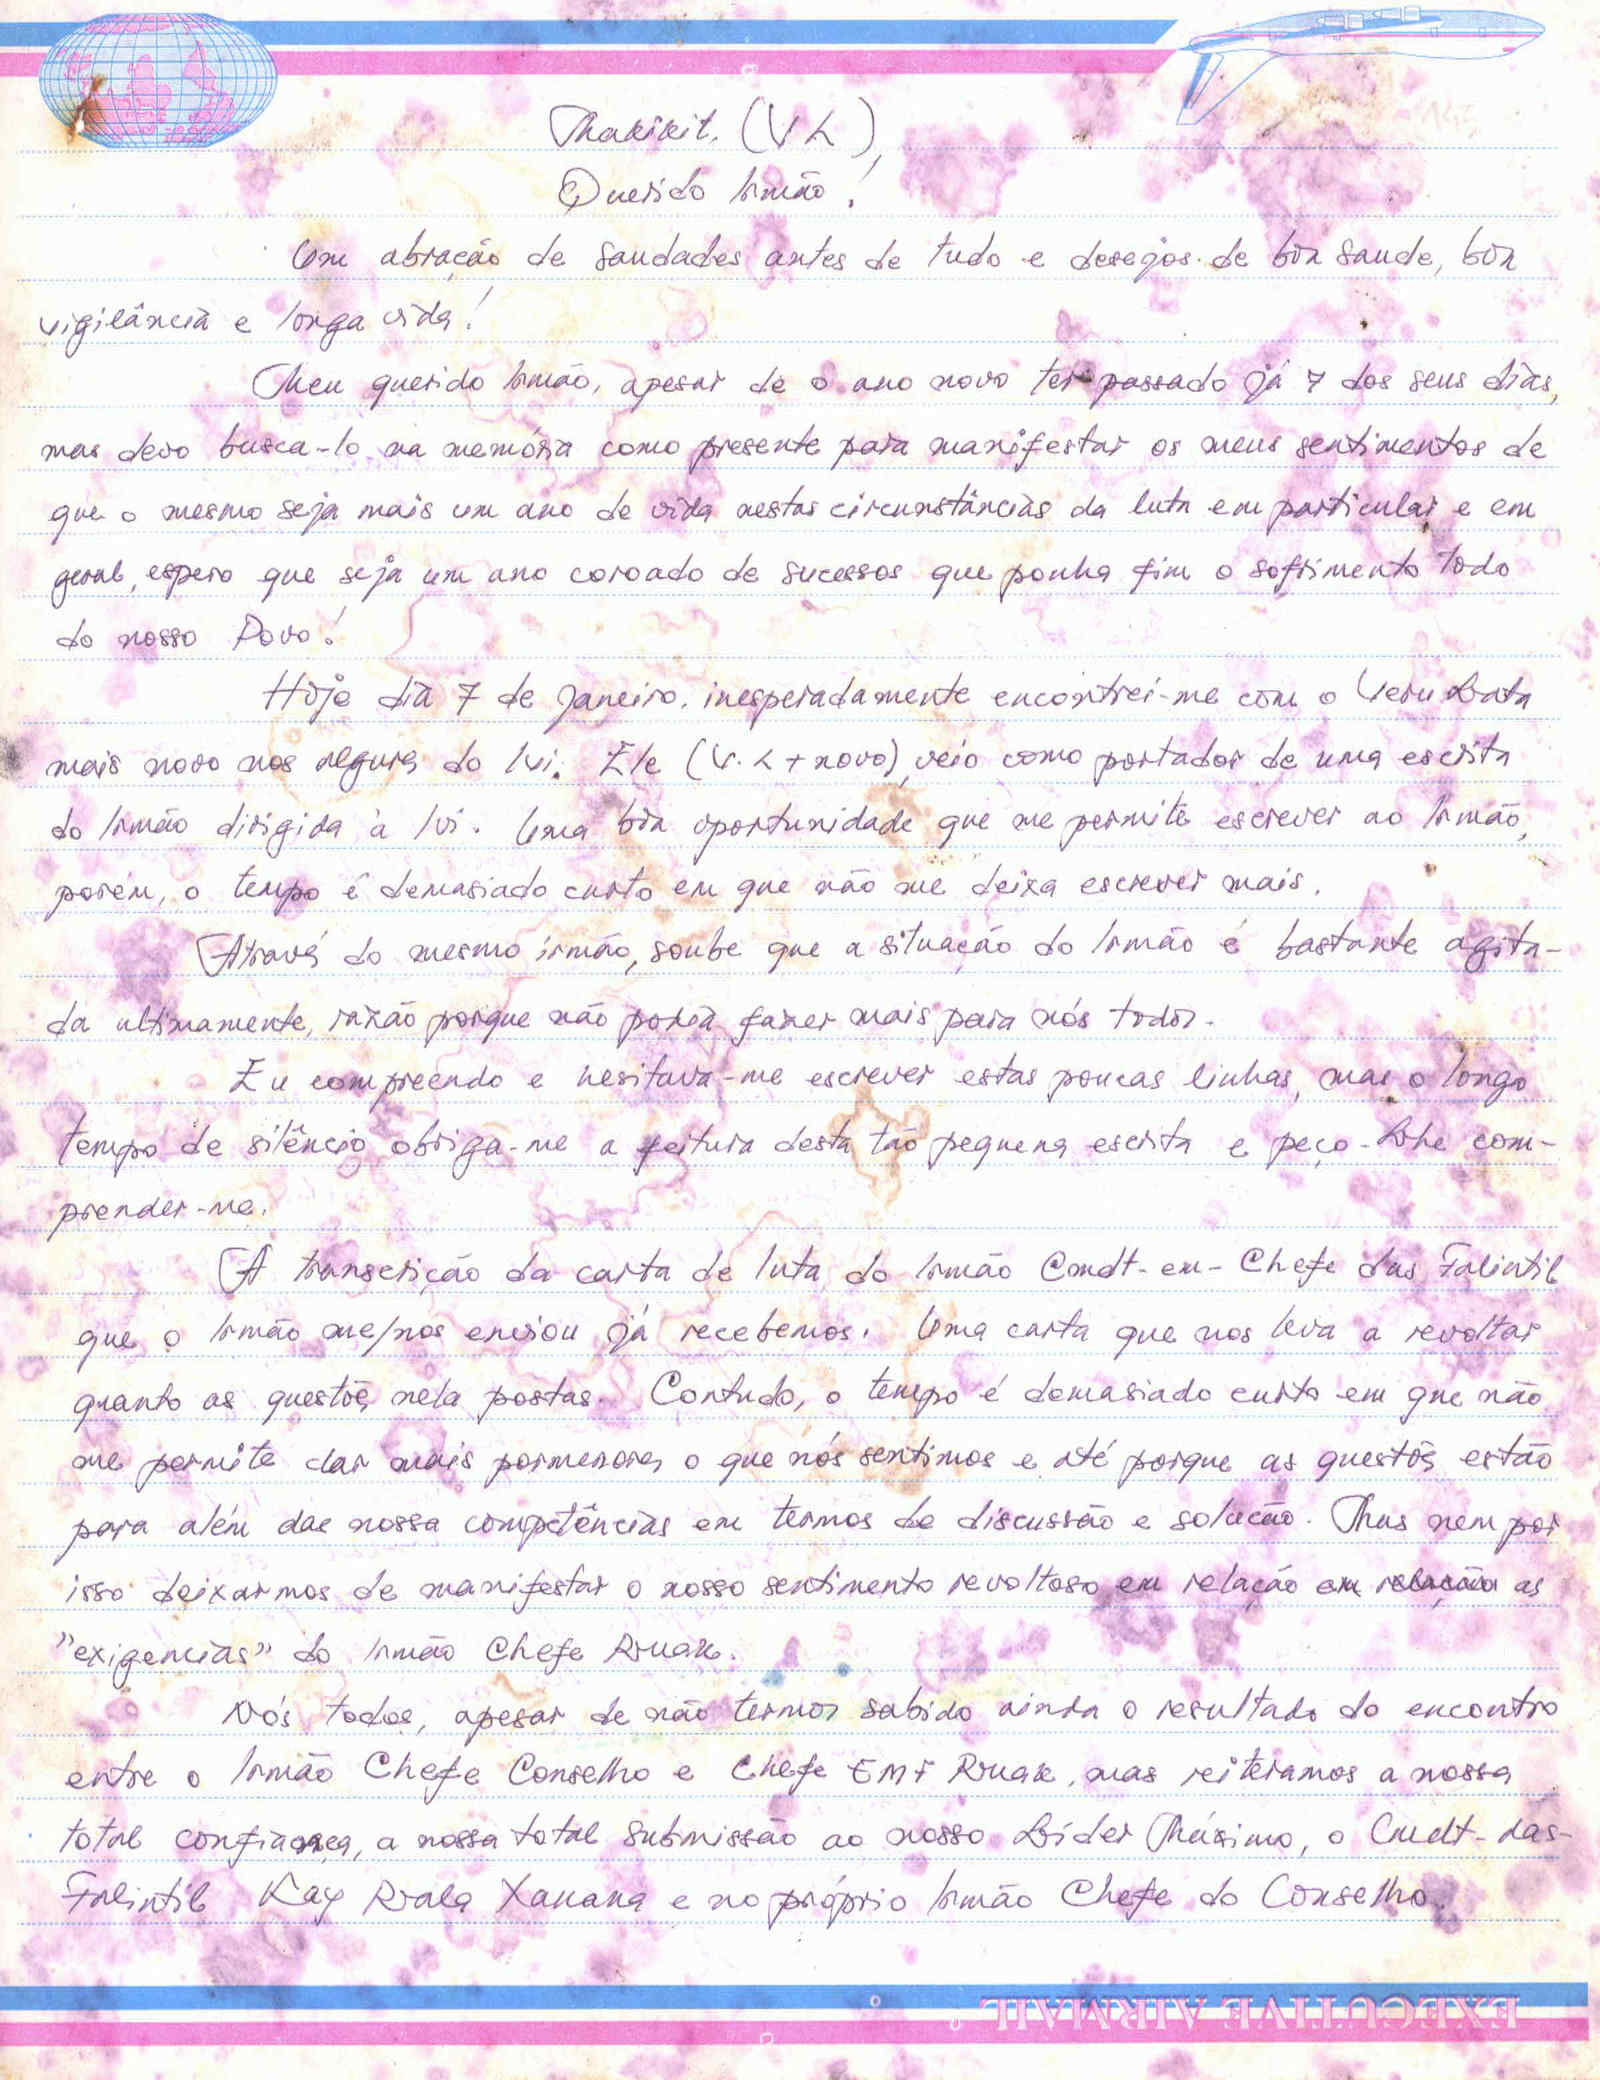 Makikit. (V L),
Querido Irmão!
Um abração de saudades antes de tudo e desejos de boa saude, boa
vigilância e longa vida!
Meu querido Irmão, apesar de o ano novo ter passado já 7 dos seus dias,
mas devo busca-lo na memória como presente para manifestar os meus sentimentos de
que o mesmo seja mais um ano de vida nestas circunstâncias da luta em particular e em
geral, espero que seja um ano coroado de sucessos que ponha fim o sofrimento todo
do nosso Povo!
Hoje dia 7 de Janeiro, inesperadamente encontrei-me com o Veru Lata
mais novo nos do Ivi. Ele (V. L + novo), veio como portador de uma escrita
do Irmão dirigida à Ivi. Uma boa oportunidade que me permite escrever ao Irmão,
porém, o tempo é demasiado curto em que não me deixa escrever mais.
Através do mesmo irmão, soube que a situação do Irmão é bastante agita-
da ultimamente, razão porque não podia fazer mais para nós todos.
Eu compreendo e hesitava-me escrever estas poucas linhas, mas o longo
tempo de silêncio obriga-me a feitura desta tão pequena escrita e peço-Lhe com-
prender-me.
A transcrição da carta de luta do Irmão Cmdt-em-Chefe das Falintil
que o Irmão me/nos enviou já recebemos. Uma carta que nos leva a revoltar
quanto as questões nela postas. Contudo, o tempo é demasiado curto em que não
me permite dar mais pormenores o que nós sentimos e até porque as questões estão
para além das nossa competências em termos de discussão e solução. Mas nem por
isso deixarmos de manifestar o nosso sentimento revoltoso em relação em relação as
"exigencias" do Irmão Chefe Rruak.
Nós todos, apesar de não termos sabido ainda o resultado do encontro
entre o Irmão Chefe Conselho e Chefe EMF Rruak, mas reiteramos a nossa
total confiança, a nossa total submissão ao nosso Líder Máximo, o Cmdt-das-
Falintil Kay Rala Xanana e no próprio Irmão Chefe do Conselho.
EXECUTIVE AIRMAIL